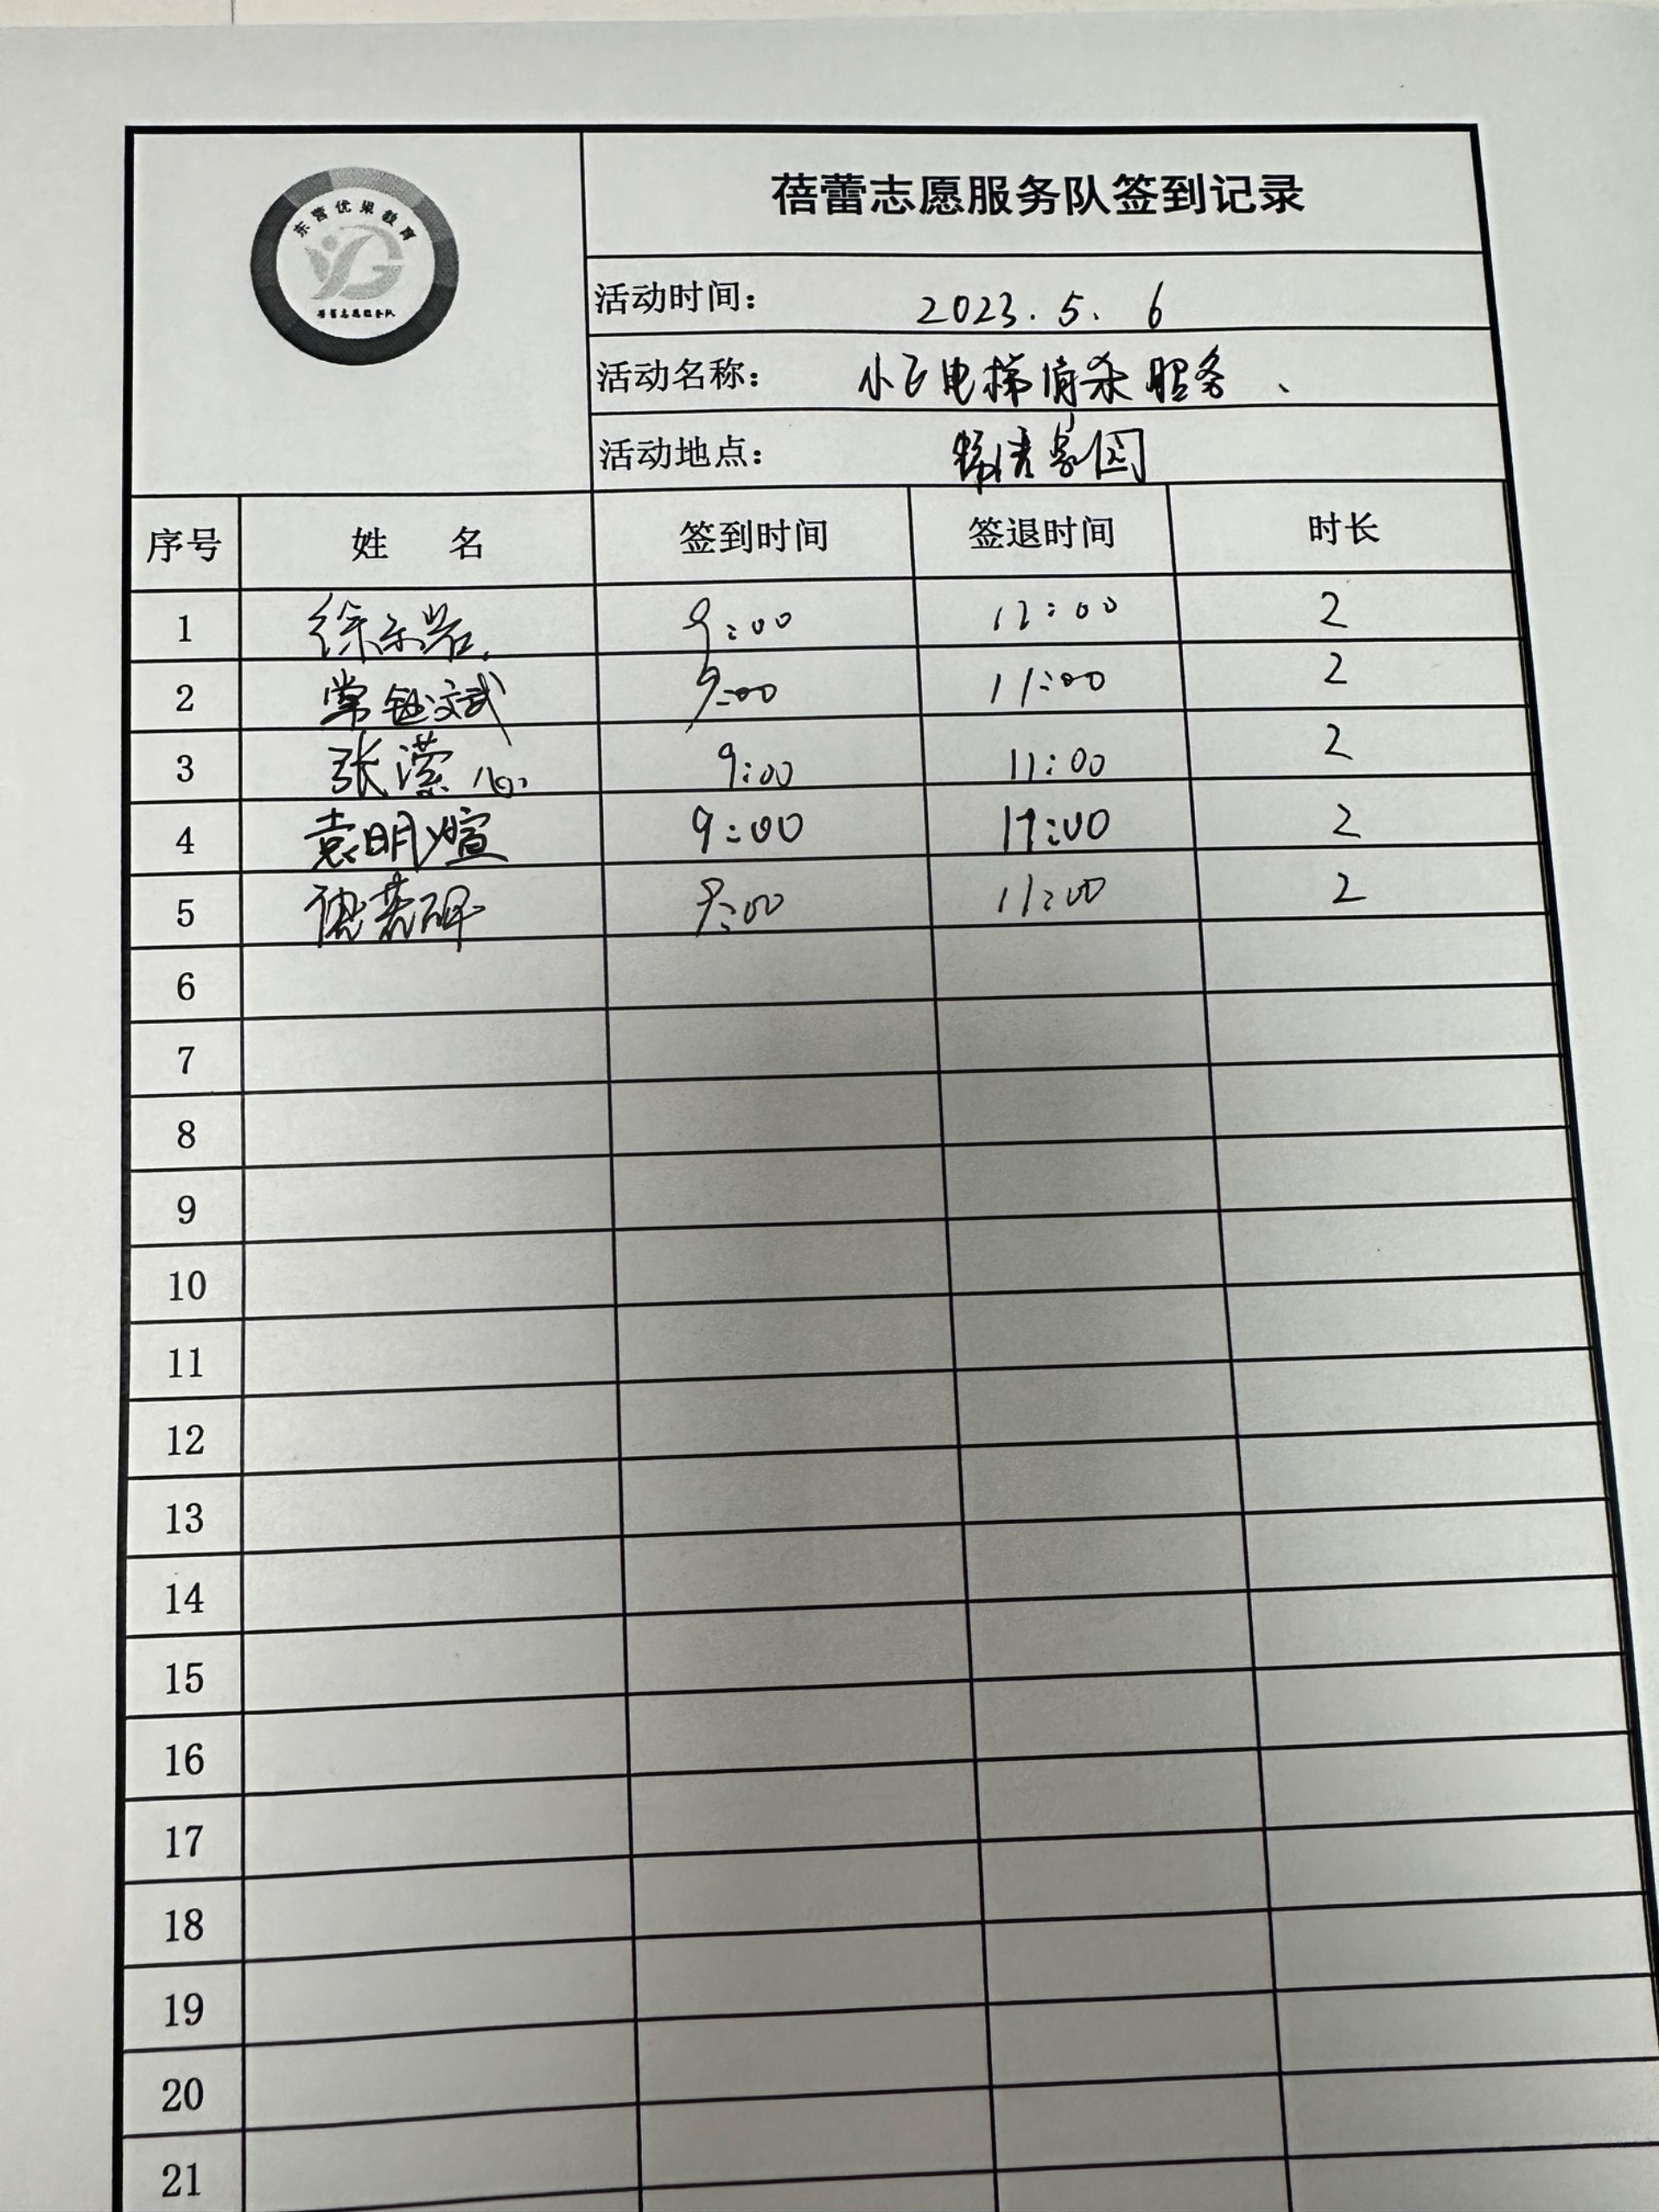 东营优果教育
蓓蕾志愿服务队
蓓蕾志愿服务队签到记录
活动时间: 2023.5.6
活动名称: 小区电梯消杀服务、
活动地点: 家园
序号 姓 名 签到时间 签退时间 时长
1 徐 9:00 12:00 2
2 常钰斌 9:00 11:00 2
3 张潆心 9:00 11:00 2
4 袁明煊 9:00 11:00 2
5 9:00 11:00 2
6
7
8
9
10
11
12
13
14
15
16
17
18
19
20
21